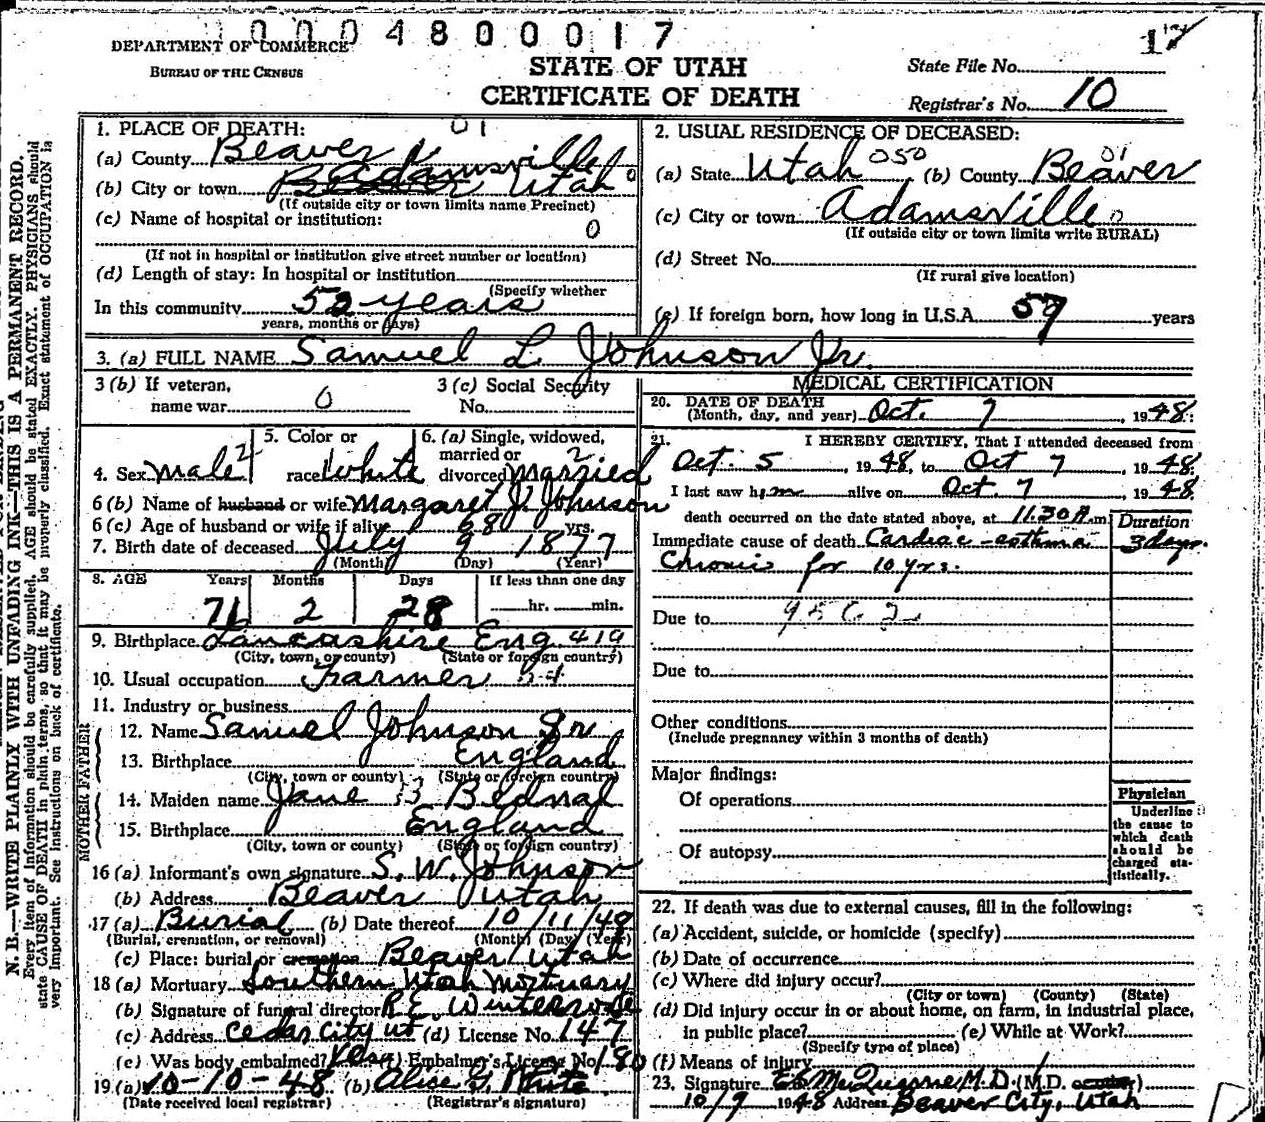 0004800017
DEPARTMENT OF COMMERCE
BUREAU OF THE CENSUS
STATE OF UTAH
CERTIFICATE OF DEATH
State File No.
Registrar's No. 10
N. B.—WRITE PLAINLY WITH UNFADING INK—THIS IS A PERMANENT RECORD.
Every item of information should be carefully supplied. AGE should be stated EXACTLY. PHYSICIANS should
state CAUSE OF DEATH in plain terms, so that it may be properly classified. Exact statement of OCCUPATION is
very important. See instructions on back of certificate.
1. PLACE OF DEATH: 01
(a) County Beaver
(b) City or town Adamsville Utah 0
(If outside city or town limits name Precinct)
(c) Name of hospital or institution:
0
(If not in hospital or institution give street number or location)
(d) Length of stay: In hospital or institution
(Specify whether
In this community 52 years
years, months or days)
2. USUAL RESIDENCE OF DECEASED:
(a) State Utah 050 (b) County Beaver 01
(c) City or town Adamsville 0
(If outside city or town limits write RURAL)
(d) Street No.
(If rural give location)
(e) If foreign born, how long in U.S.A. 59 years
3. (a) FULL NAME Samuel L. Johnson Jr.
3 (b) If veteran, name war 0
3 (c) Social Security No.
4. Sex Male 2
5. Color or race White
6. (a) Single, widowed, married or divorced Married 2
6 (b) Name of husband or wife Margaret J. Johnson
6 (c) Age of husband or wife if alive 68 yrs.
7. Birth date of deceased July 9 1877
(Month) (Day) (Year)
8. AGE Years Months Days If less than one day
71 2 28 hr. min.
9. Birthplace Lancashire Eng. 419
(City, town, or county) (State or foreign country)
10. Usual occupation Farmer
11. Industry or business
FATHER
12. Name Samuel Johnson Sr
13. Birthplace England
(City, town or county) (State or foreign country)
MOTHER
14. Maiden name Jane B Bednal
15. Birthplace England
(City, town or county) (State or foreign country)
16 (a) Informant's own signature S. W. Johnson
(b) Address Beaver Utah
17 (a) Burial (b) Date thereof 10/11/48
(Burial, cremation, or removal) (Month) (Day) (Year)
(c) Place: burial or cremation Beaver Utah
18 (a) Mortuary Southern Utah Mortuary
(b) Signature of funeral director R. E. Winterrose
(c) Address Cedar City Ut (d) License No. 147
(e) Was body embalmed? Yes (f) Embalmer's License No. 180
19 (a) 10-10-48 (b) Alice G. White
(Date received local registrar) (Registrar's signature)
MEDICAL CERTIFICATION
20. DATE OF DEATH
(Month, day, and year) Oct. 7, 1948.
21. I HEREBY CERTIFY, That I attended deceased from
Oct. 5, 1948, to Oct 7, 1948
I last saw him alive on Oct. 7, 1948
death occurred on the date stated above, at 11.30 A.m.
Duration
Immediate cause of death Cardiac-asthma 3 days.
Chronic for 10 yrs.
Due to
Due to
Other conditions
(Include pregnancy within 3 months of death)
Major findings:
Of operations
Of autopsy
Physician
Underline
the cause to
which death
should be
charged sta-
tistically.
22. If death was due to external causes, fill in the following:
(a) Accident, suicide, or homicide (specify)
(b) Date of occurrence
(c) Where did injury occur?
(City or town) (County) (State)
(d) Did injury occur in or about home, on farm, in industrial place,
in public place? (e) While at Work?
(Specify type of place)
(f) Means of injury
23. Signature M.D. (M.D.
10/9 1948 Address Beaver City, Utah